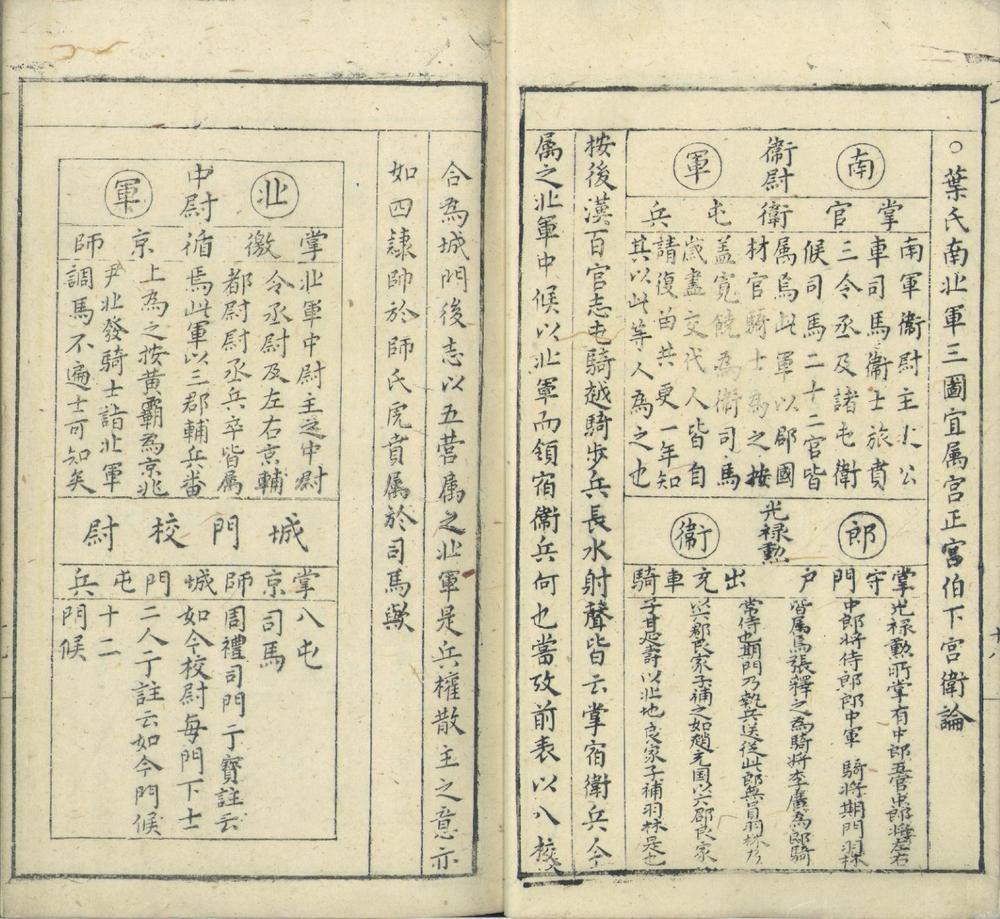 ○葉氏南北軍三圖宜属宮正宮伯下宮衛論
南
衛尉
軍
掌官衛屯兵
南軍衛尉主之公
車司馬衛士旅賁
三令丞及諸屯衛
候司馬二十二官皆
属焉此軍以郡國
材官騎士為之按
盖寛饒為衛司馬
歳盡交代人皆自
請復留共更一年知
其以此等人為之也
郎
光禄勲
衛
掌守門户出充車騎
光禄勲所掌有中郎五官中郎將左右
中郎將侍郎郎中軍騎將期門羽林
皆属焉張釋之為騎將李廣為郎騎
常侍也期門乃執兵送從此郎無員羽林乃
以郡良家子補之如趙充国以六郡良家
子甘延壽以北地良家子補羽林是也
按後漢百官志屯騎越騎步兵長水射聲皆云掌宿衛兵今
属之北軍中候以北軍而領宿衛兵何也當攷前表以八校
合為城門後志以五營属之北軍是兵權散主之意亦
如四隷帥於師氏虎賁属於司馬歟
北
中尉
軍
掌徼循京師
北軍中尉主之中尉
令丞尉及左右京輔
都尉尉丞兵卒皆属
焉此軍以三郡輔兵番
上為之按黄霸為京兆
尹北發騎士詣北軍
調馬不遍士可知矣
城門校尉
掌京師城門屯兵
八屯
司馬
周禮司門丁寶註云
如今校尉每門下士
二人丁註云如今門候
十二
門候